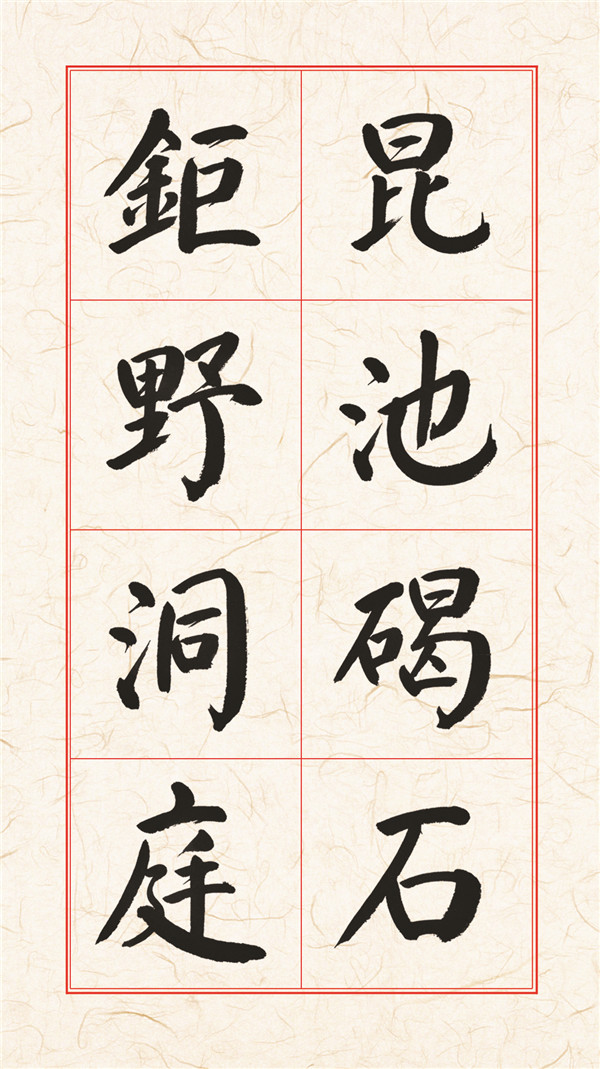 昆池碣石
鉅野洞庭